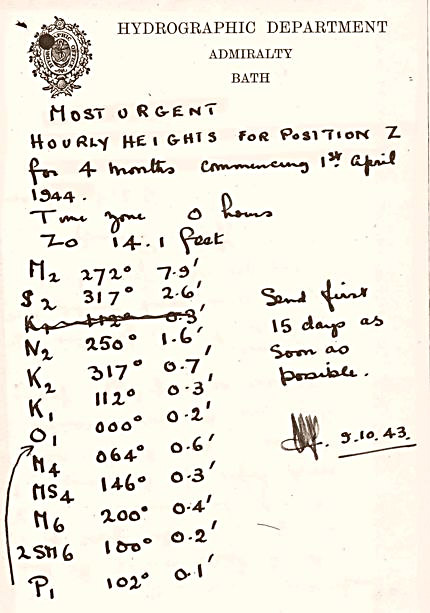 HYDROGRAPHIC DEPARTMENT
ADMIRALTY
BATH
MOST URGENT
HOURLY HEIGHTS FOR POSITION Z
for 4 months commencing 1st April
1944.
Time zone 0 hours
Z0 14.1 feet
M2 272° 7.9'
S2 317° 2.6'
K1 112° 0.3
N2 250° 1.6'
K2 317° 0.7'
K1 112° 0.3'
O1 000° 0.2'
M4 064° 0.6'
MS4 146° 0.3'
M6 200° 0.4'
2SM6 100° 0.2'
P1 102° 0.1'
Send first
15 days as
soon as
possible.
9.10.43.